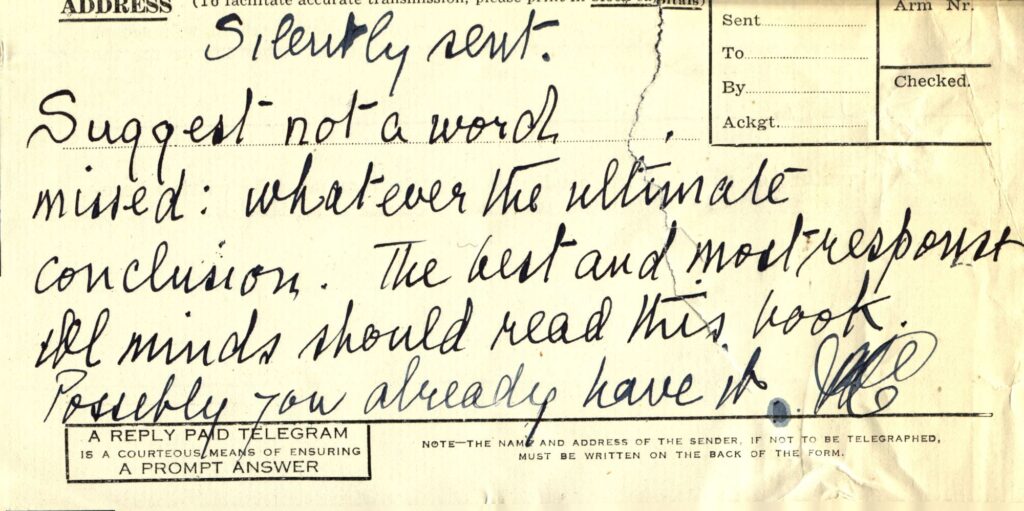 ADDRESS (To facilitate accurate transmission, please print in block capitals)
Silently sent.
Suggest not a word
missed: whatever the ultimate
conclusion. The best and most response
ibl minds should read this book.
Possebly you already have it.
Sent
To
By
Ackgt.
Arm Nr.
Checked.
A REPLY PAID TELEGRAM
IS A COURTEOUS MEANS OF ENSURING
A PROMPT ANSWER
NOTE—THE NAME AND ADDRESS OF THE SENDER, IF NOT TO BE TELEGRAPHED,
MUST BE WRITTEN ON THE BACK OF THE FORM.